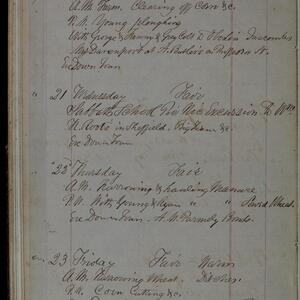 A.M. Farm. Clearing off Corn &c.
P.M. Young ploughing
With George & Fanny & Geo. Colt to Oberlin
Mrs Davenport at A. Butlers on
Eve Down Town
" 21 Wednesday Fair
Sabbath School Pic Nic Excursion to
in Sheffield. &c
Eve Down Town
" 22 Thursday Fair
A.M. Harrowing & hauling Manure
P.M. With Young & Ryan " " Sowed Wheat.
Eve Down Town. A. W. Parmely Bonds.
" 23 Friday Fair Warm
A.M. Harrowing Wheat.
P.M. Corn Cutting &c.